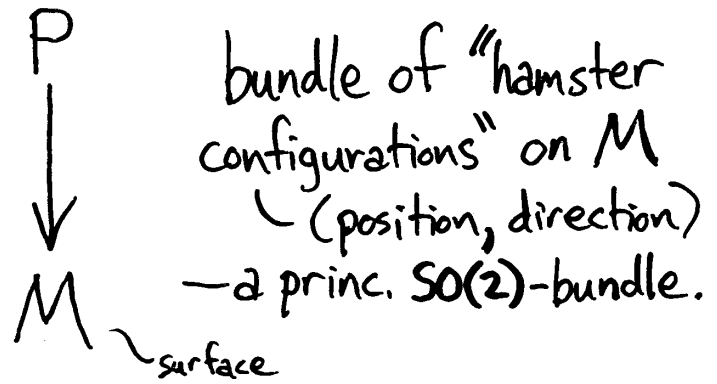 P
bundle of "hamster
configurations" on M
(position, direction)
M
—a princ. SO(2)-bundle.
surface